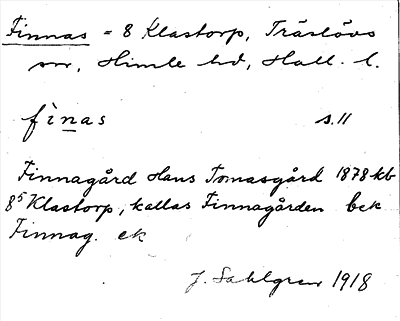 Finnas = 8 Klastorp, Träslövs
sn, Himle hd, Hall. l.
fìnas s. 11
Finnagård Hans Tomasgård 1878 kb
8⁵ Klastorp, kallas Finnagården bek
Finnag. ek
J. Sahlgren 1918